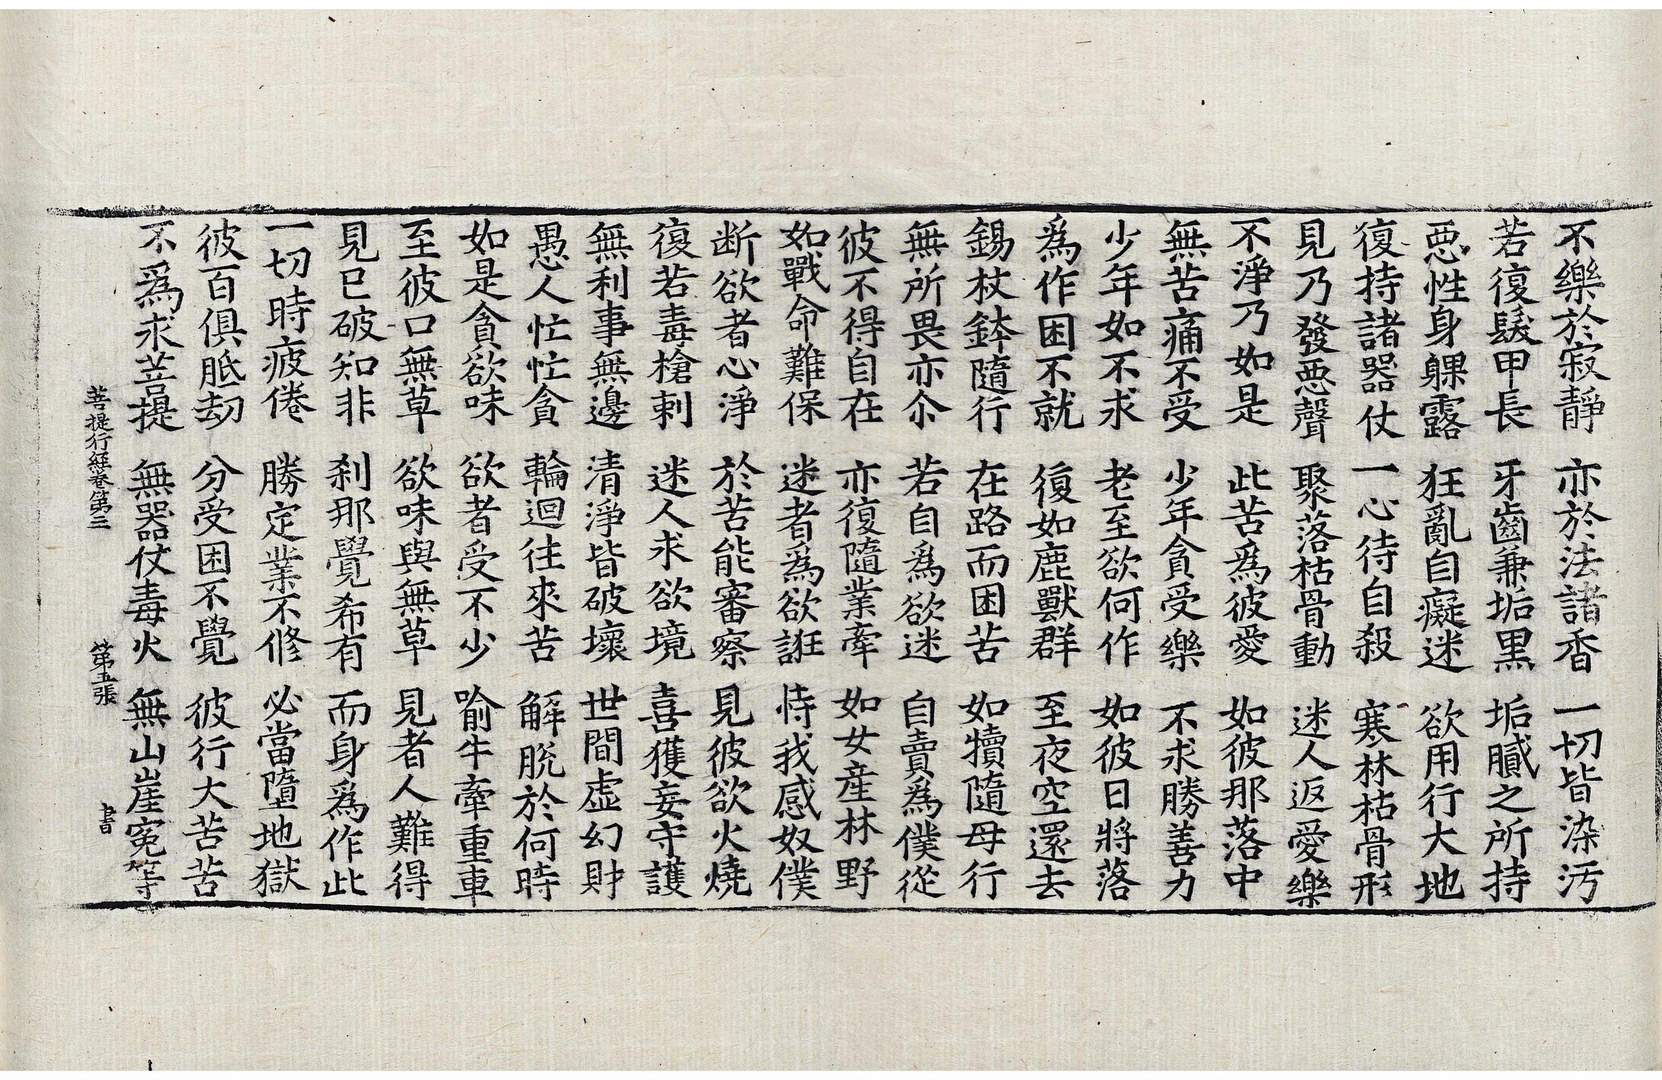 不樂於寂靜　亦於法諸香　一切皆染污
若復髮甲長　牙齒兼垢黒　垢膩之所持
惡性身躶露　狂亂自癡迷　欲用行大地
復持諸器仗　一心待自殺　寒林枯骨形
見乃發惡聲　聚落枯骨動　迷人返愛樂
不淨乃如是　此苦爲彼愛　如彼那落中
無苦痛不受　少年貪受樂　不求勝善力
少年如不求　老至欲何作　如彼日將落
爲作困不就　復如鹿獸群　至夜空還去
錫杖鉢隨行　在路而困苦　如犢隨母行
無所畏亦尒　若自爲欲迷　自賣為僕從
彼不得自在　亦復隨業牽　如女産林野
如戰命難保　迷者爲欲誑　恃我感奴僕
断欲者心淨　於苦能審察　見彼欲火燒
復若毒槍刺　迷人求欲境　喜獲妄守護
無利事無邊　清淨皆破壞　世間虛幻財
愚人忙忙貪　輪迴往來苦　解脫於何時
如是貪欲味　欲者受不少　喻牛牽重車
至彼口無草　欲味與無草　見者人難得
見巳破知非　剎那覺希有　而身爲作此
一切時疲倦　勝定業不修　必當墮地獄
彼百俱胝劫　分受困不覺　彼行大苦苦
不爲求菩提　無器仗毒火　無山崖寃等
菩提行經卷第三　第五張　書